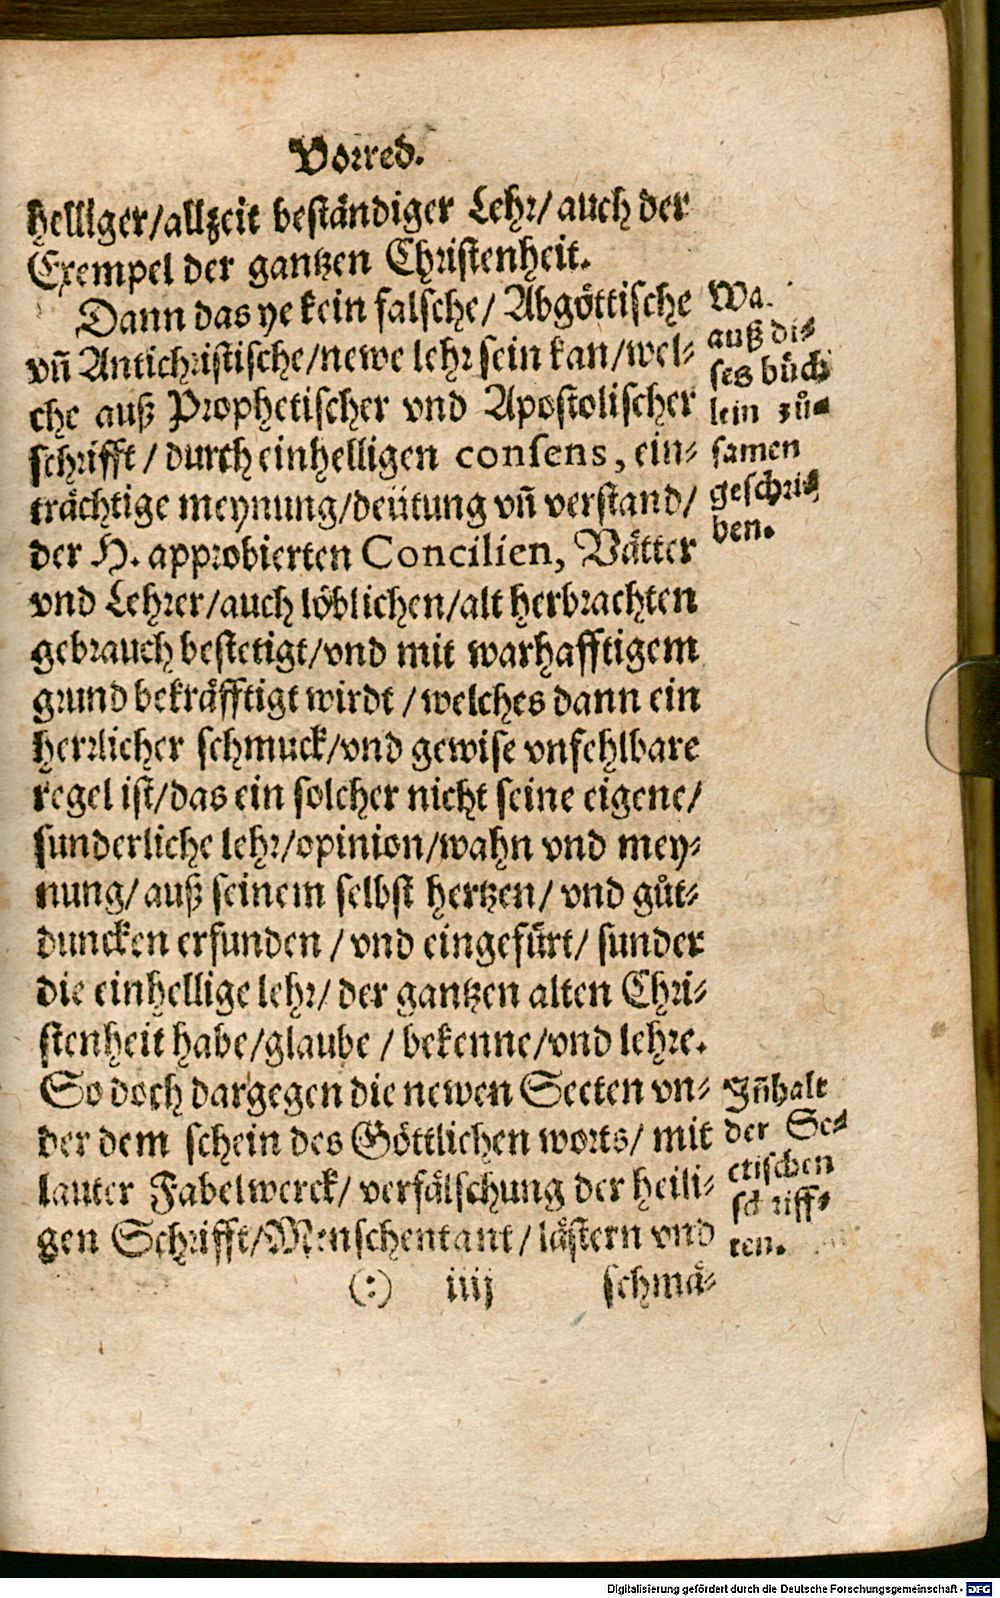 Vorred.
helliger/allzeit beständiger Lehr/auch der
Exempel der gantzen Christenheit.
Dann das ye kein falsche/ Abgöttische
vñ Antichristische/newe lehr sein kan/wel-
che auß Prophetischer vnd Apostolischer
schrifft/durch einhelligen consens, ein-
trächtige meynung/deütung vñ verstand/
der H. approbierten Concilien, Vätter
vnd Lehrer/auch löblichen/alt herbrachten
gebrauch bestetigt/vnd mit warhafftigem
grund bekräfftigt wirdt/welches dann ein
herrlicher schmuck/vnd gewise vnfehlbare
regel ist/das ein solcher nicht seine eigene/
sunderliche lehr/opinion/wahn vnd mey-
nung/auß seinem selbst hertzen/vnd gůt-
duncken erfunden/vnd eingefürt/sunder
die einhellige lehr/der gantzen alten Chri-
stenheit habe/glaube/bekenne/vnd lehre.
So doch dargegen die newen Secten vn-
der dem schein des Göttlichen worts/mit
lauter Fabelwerck/verfälschung der heili-
gen Schrifft/Menschentant/lästern vnd
(:) iiij schmä-
Wa.
auß di-
ses büch
lein zů-
samen
geschri-
ben.
Jñhalt
der Se-
ctischen
schriff-
ten.
Digitalisierung gefördert durch die Deutsche Forschungsgemeinschaft - DFG